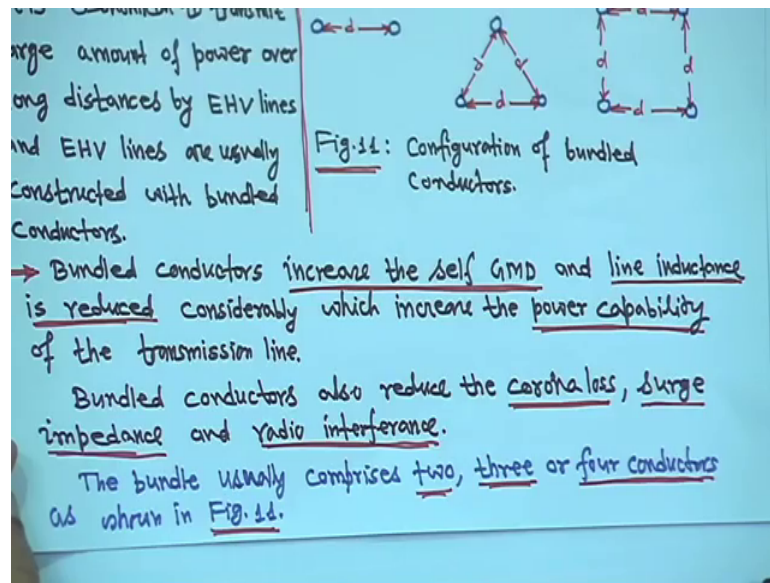 to transmit
arge amount of power over
ong distances by EHV lines
and EHV lines are usually
constructed with bundled
Conductors.
d
d d
d
d d
d
Fig.11: Configuration of bundled
Conductors.
→ Bundled conductors increase the self GMD and line inductance
is reduced considerably which increase the power capability
of the transmission line.
Bundled conductors also reduce the corona loss, surge
impedance and radio interferance.
The bundle usually comprises two, three or four conductors
as shown in Fig.11.